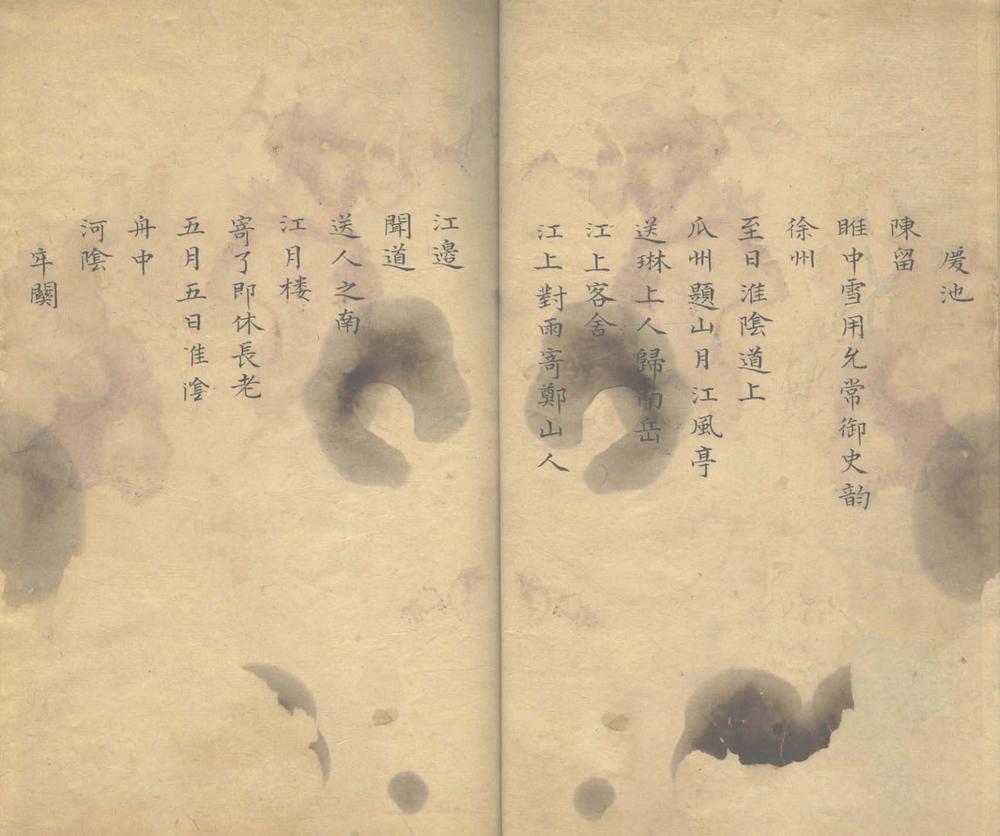 陳留
睢中雪用允常御史韵
徐州
至日淮陰道上
瓜州題山月江風亭
送琳上人歸南岳
江上客舍
江上對雨寄鄭山人
江邊
聞道
送人之南
江月楼
寄了即休長老
五月五日淮陰
舟中
河陰
牢關